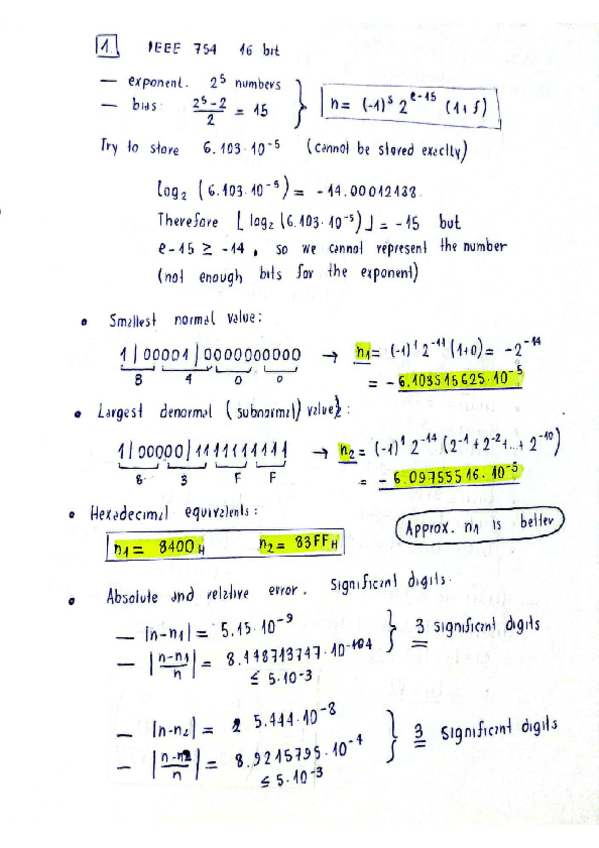 1. IEEE 754 16 bit
— exponent. 2^5 numbers
— bias: (2^5-2)/2 = 15 } n = (-1)^s 2^(e-15) (1+f)
Try to store 6.103·10^-5 (cannot be stored exactly)
Log2 (6.103·10^-5) = -14.00012188.
Therefore ⌊log2 (6.103·10^-5)⌋ = -15 but
e-15 ≥ -14, so we cannot represent the number
(not enough bits for the exponent)
• Smallest normal value:
1|00001|0000000000 → n1 = (-1)^1 2^-14 (1+0) = -2^-14
8 4 0 0 = -6.103515625·10^-5
• Largest denormal (subnormal) value:
1|00000|1111111111 → n2 = (-1)^1 2^-14 (2^-1 + 2^-2 + ... + 2^-10)
8 3 F F = -6.09755516·10^-5
• Hexadecimal equivalents:
n1 = 8400H n2 = 83FFH
Approx. n1 is better
• Absolute and relative error. Significant digits.
— |n-n1| = 5.15·10^-9
— |(n-n1)/n| = 8.448713747·10^-4 } 3 significant digits
≤ 5·10^-3
— |n-n2| = 5.444·10^-8
— |(n-n2)/n| = 8.9215795·10^-4 } 3 significant digits
≤ 5·10^-3